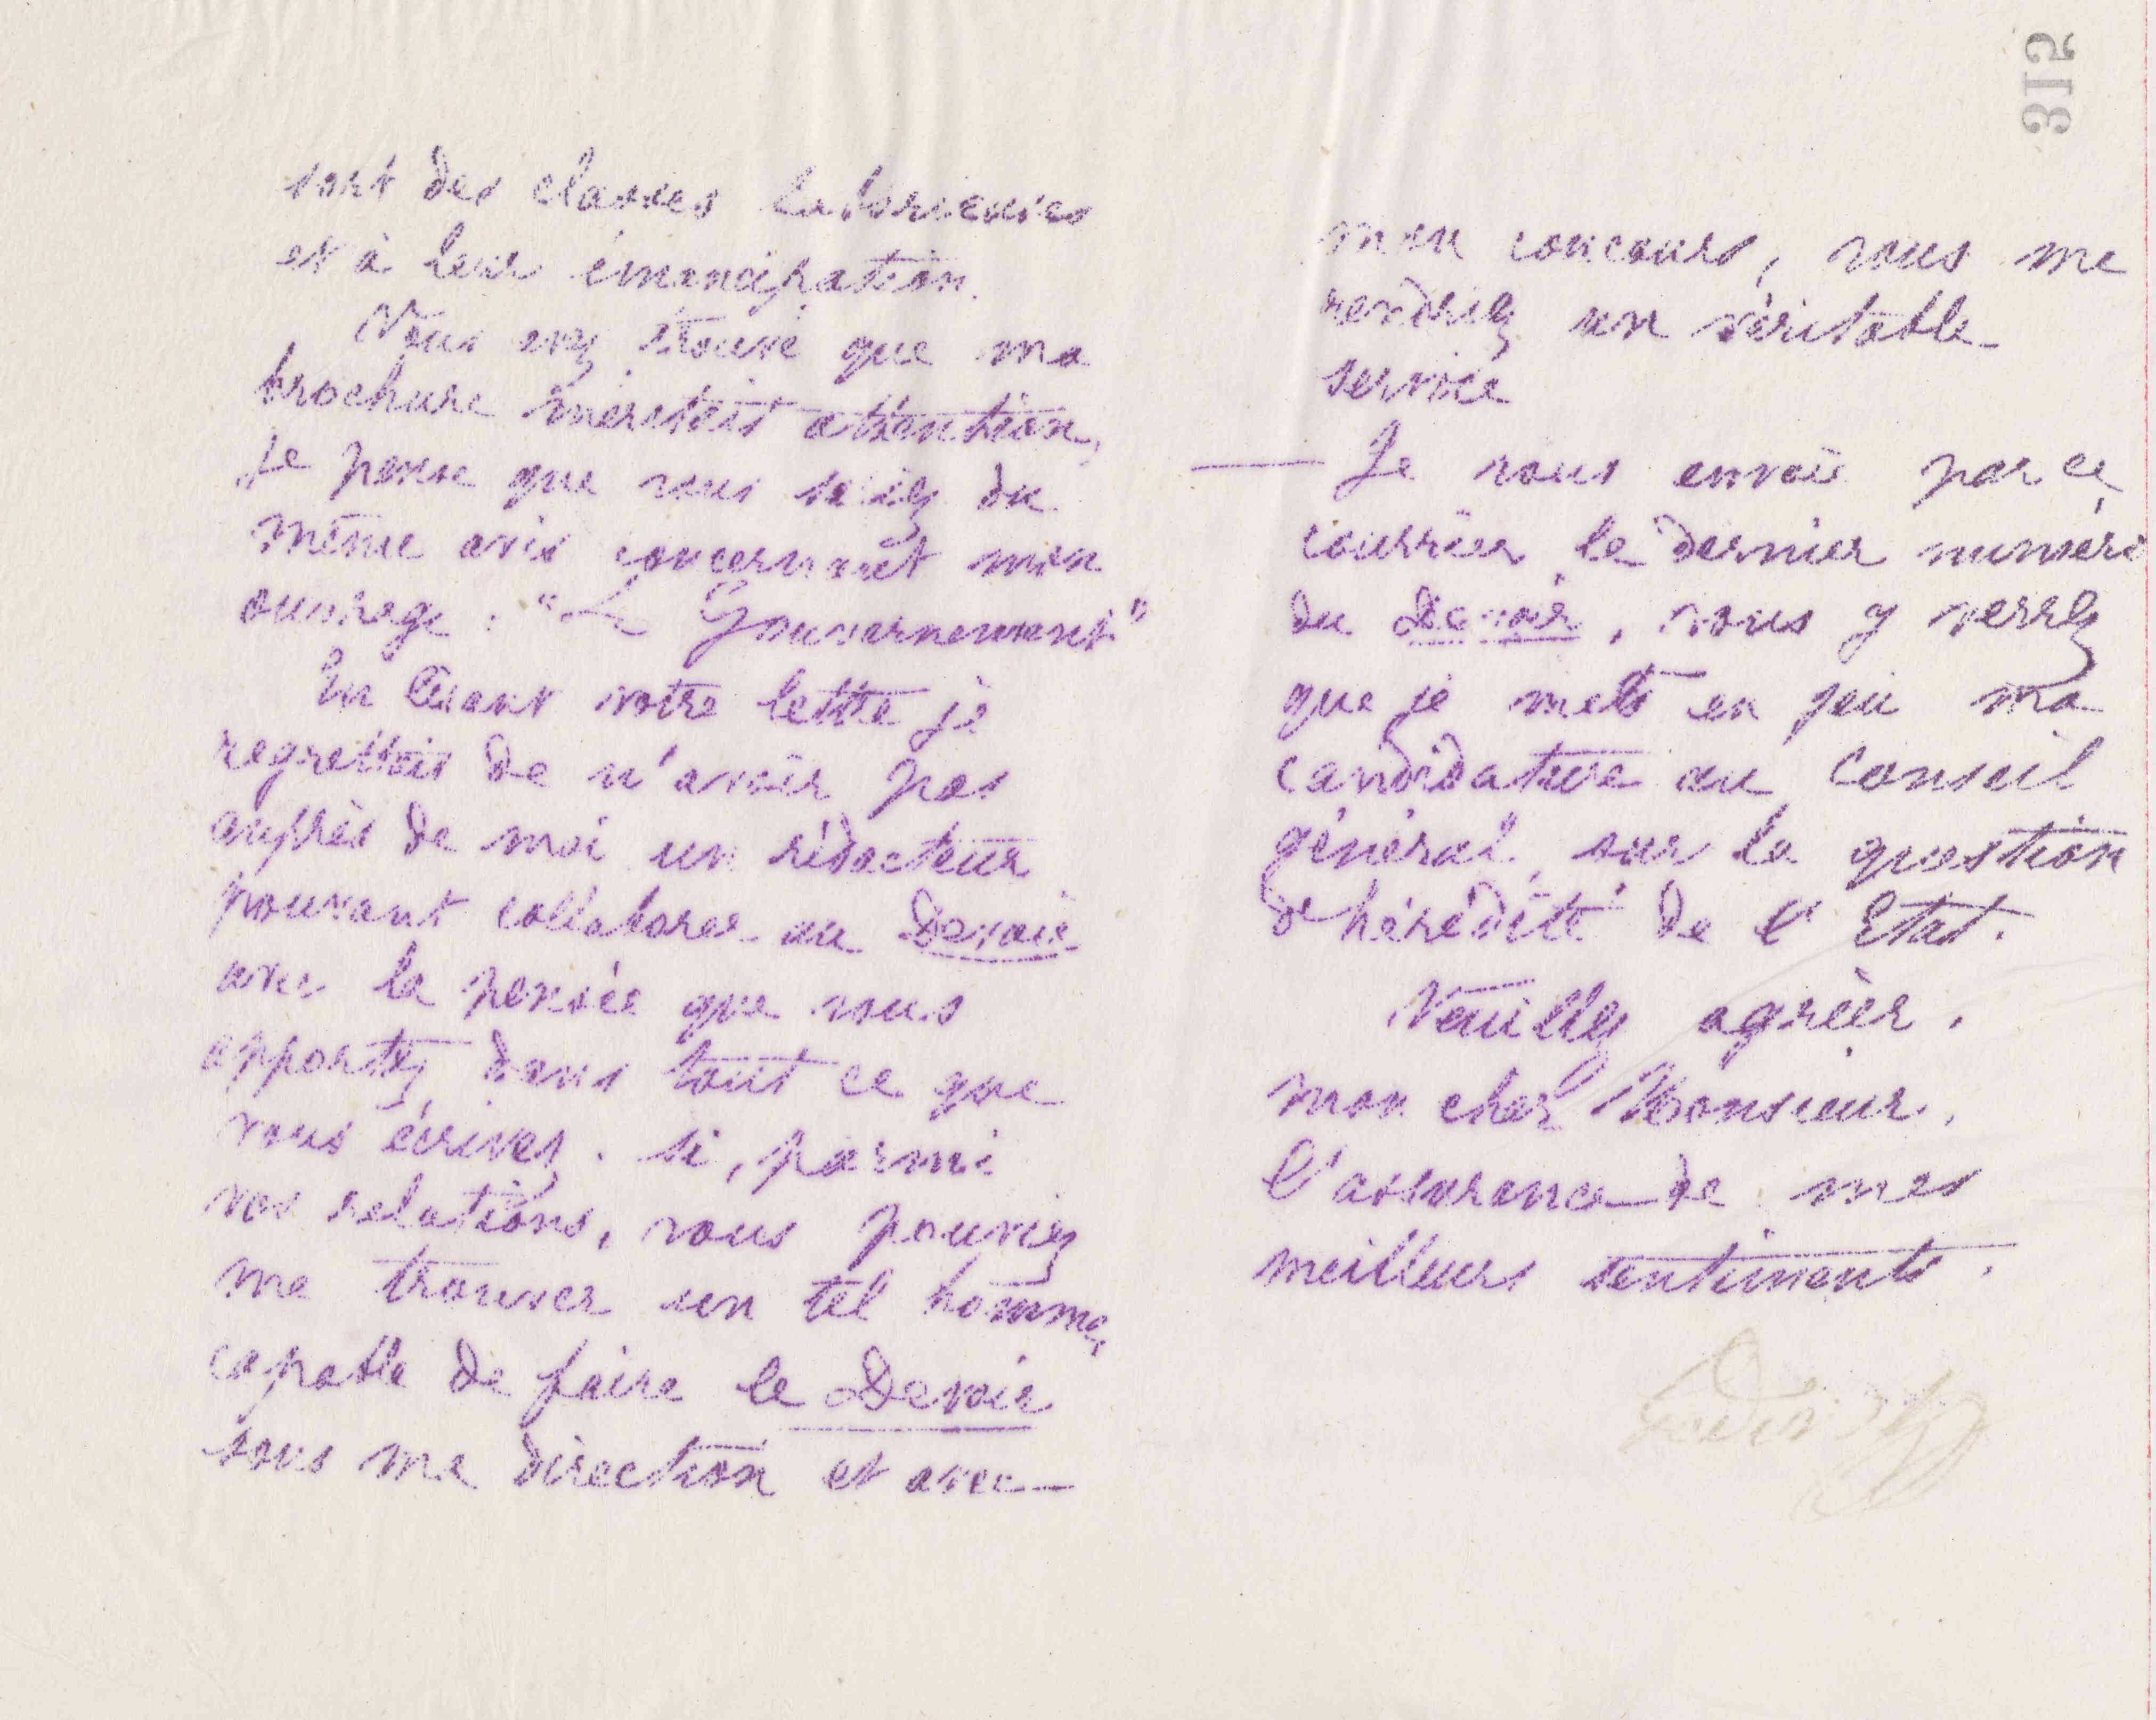 sort des classes laborieuses
et à leur émancipation.
Vous avez trouvé que ma
brochure méritait attention,
je pense que vous serez du
même avis concernant mon
ouvrage : "Le Gouvernement"
En lisant votre lettre je
regrettais de n'avoir pas
auprès de moi un rédacteur
pouvant collaborer au Devoir
avec la pensée que vous
apportez dans tout ce que
vous écrivez. Si, parmi
vos relations, vous pouviez
me trouver un tel homme,
capable de faire le Devoir
sous ma direction et avec
315
mon concours, vous me
rendriez un véritable
service
— Je vous envoie par ce
courrier le dernier numéro
du Devoir, vous y verrez
que je mets en jeu ma
candidature au Conseil
général sur la question
d'hérédité de l'Etat.
Veuillez agréer,
mon cher Monsieur,
l'assurance de mes
meilleurs sentiments.
Godin